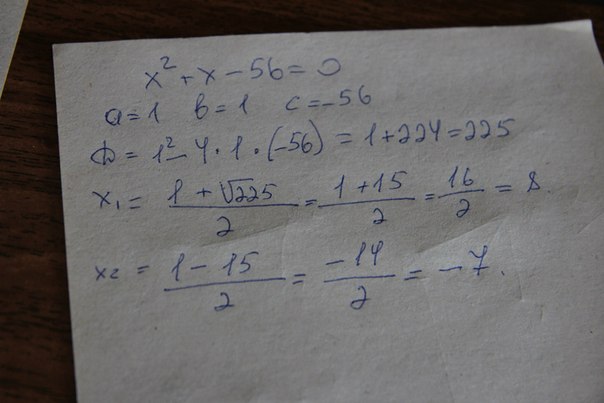 x² + x – 56 = 0
a = 1 b = 1 c = –56
D = 1² – 4 · 1 · (–56) = 1 + 224 = 225
x₁ = (1 + √225)/2 = (1 + 15)/2 = 16/2 = 8.
x₂ = (1 – 15)/2 = –14/2 = –7.